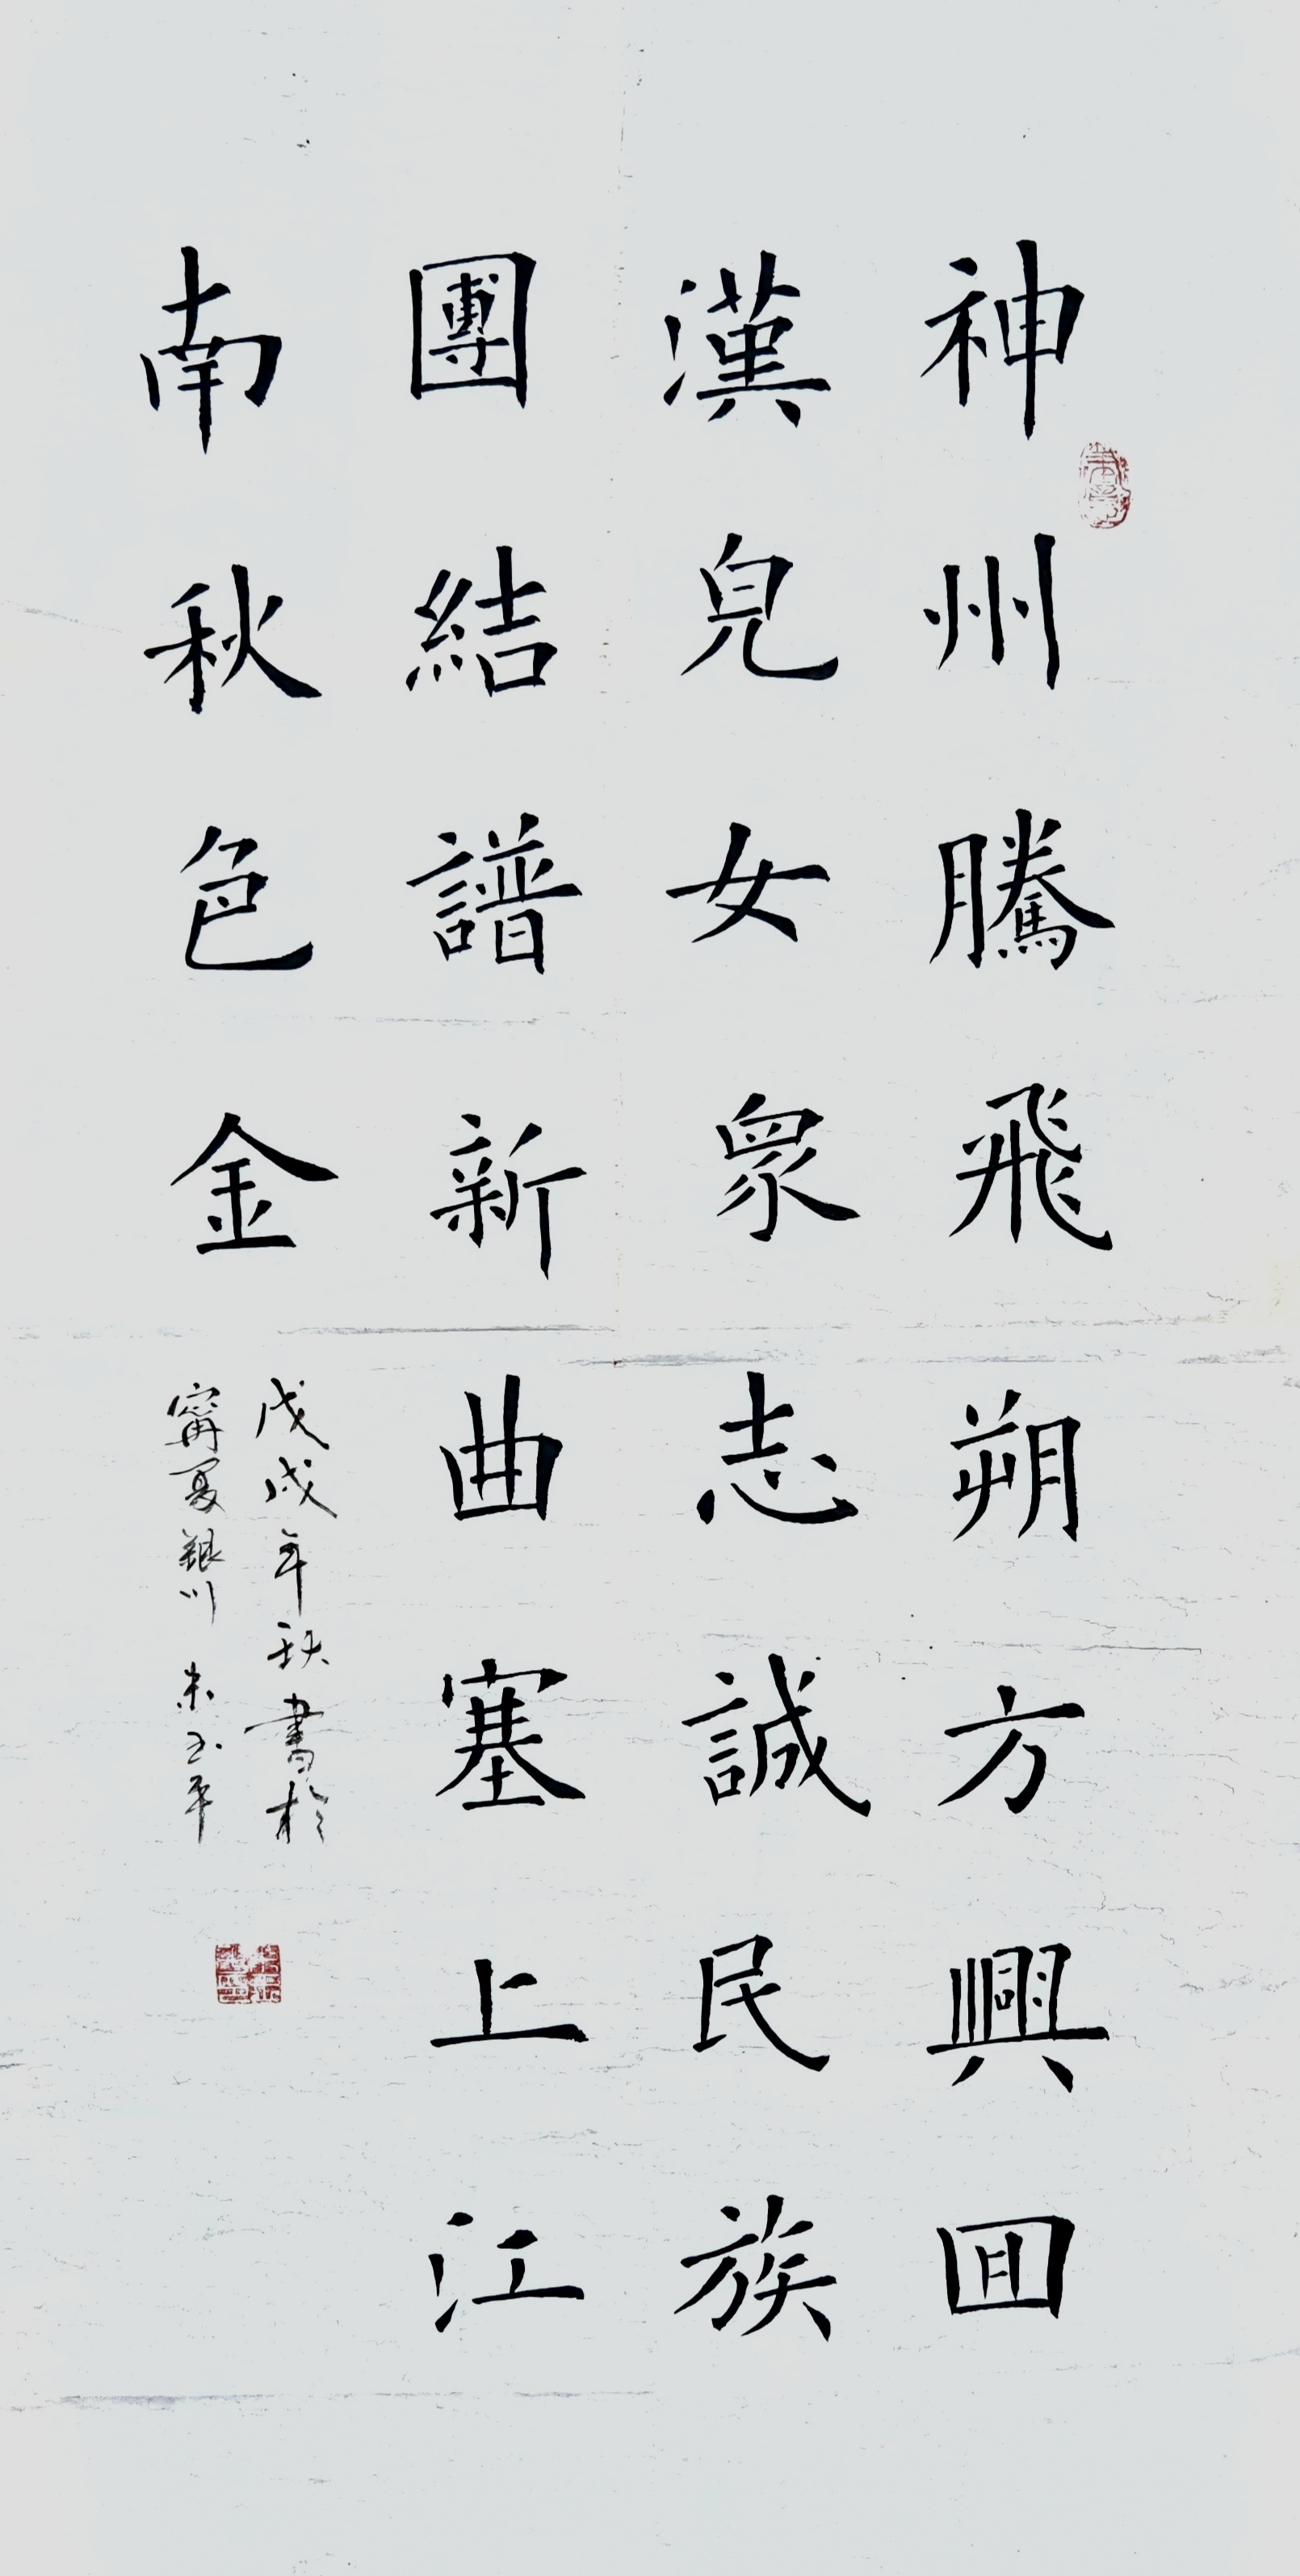 神州騰飛朔方興回
漢兒女眾志誠民族
團結譜新曲塞上江
南秋色金
戊戌年秋書於
寧夏銀川 朱玉平